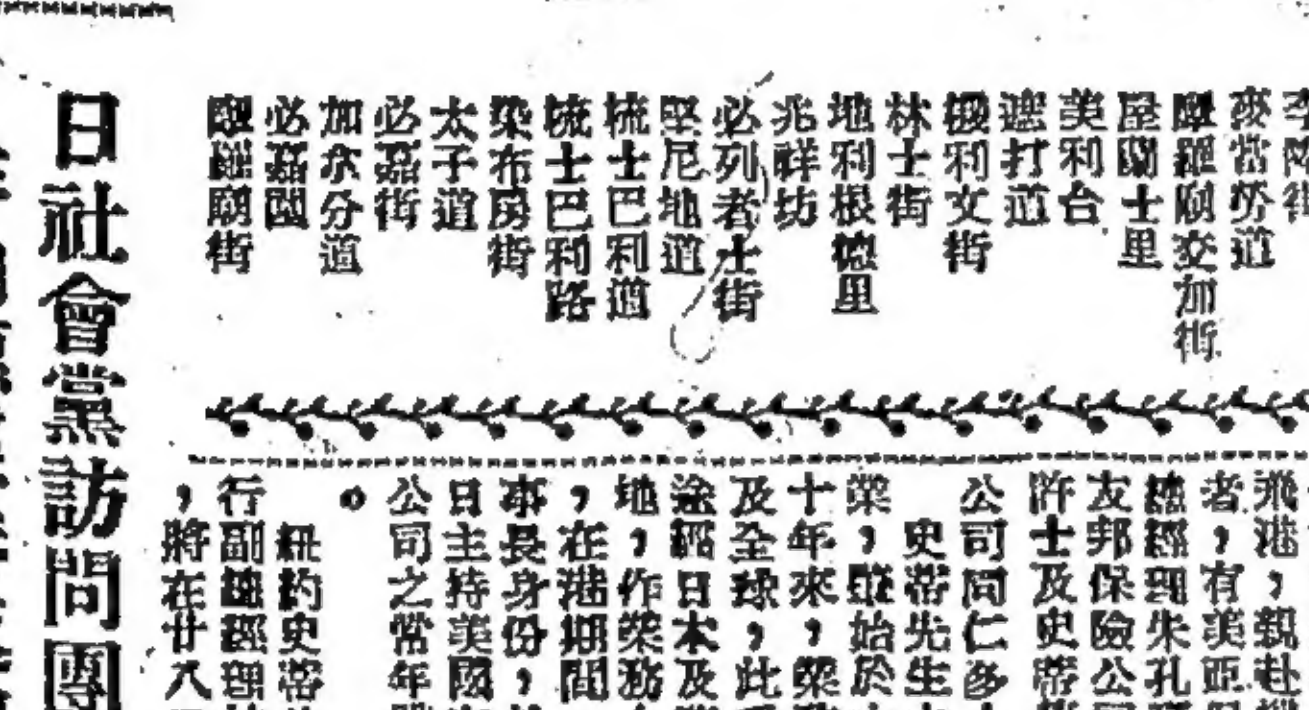 麥當勞道
摩羅廟交加街
屋蘭士里
美利台
遮打道
機利文街
林士街
地利根德里
兆祥坊
必列者士街
堅尼地道
梳士巴利道
梳士巴利路
染布房街
太子道
加水分道
必嘉街
必嘉園
摩羅廟街
飛港，親赴
者，有美亞
總經理朱孔
友邦保險公司
許士及史帶
公司同仁多
史帶先生
業，肇始於
十年來，業務
及全球，此
途經日本及
地，作業務
，在港期間
事長身份，
日主持美國
公司之常年
。
紐約史帶
行副總經理
，將在廿八
日社會黨訪問團